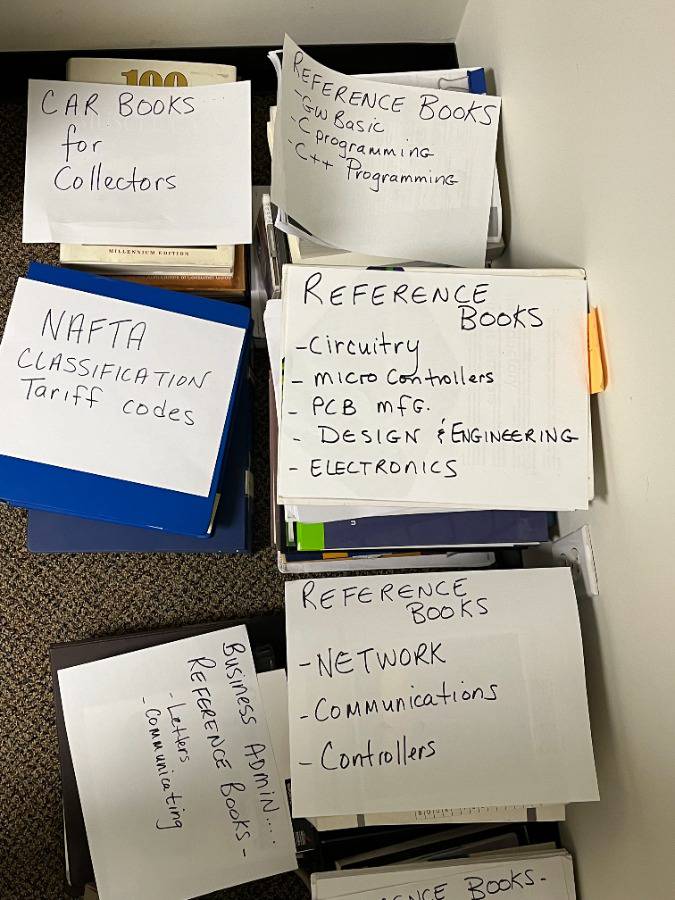 100
CAR BOOKS
for
Collectors
MILLENNIUM EDITION
REFERENCE BOOKS
-GW BASIC
-C programming
-C++ Programming
NAFTA
CLASSIFICATION
Tariff codes
REFERENCE
BOOKS
-Circuitry
- micro Controllers
- PCB mFG.
- DESIGN & ENGINEERING
- ELECTRONICS
REFERENCE
BOOKS
-NETWORK
-Communications
- Controllers
BUSINESS ADMIN....
REFERENCE BOOKS-
-Letters
-Communicating
BOOKS-